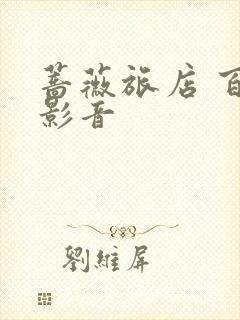 蔷薇旅店 百
影音
劉維屏